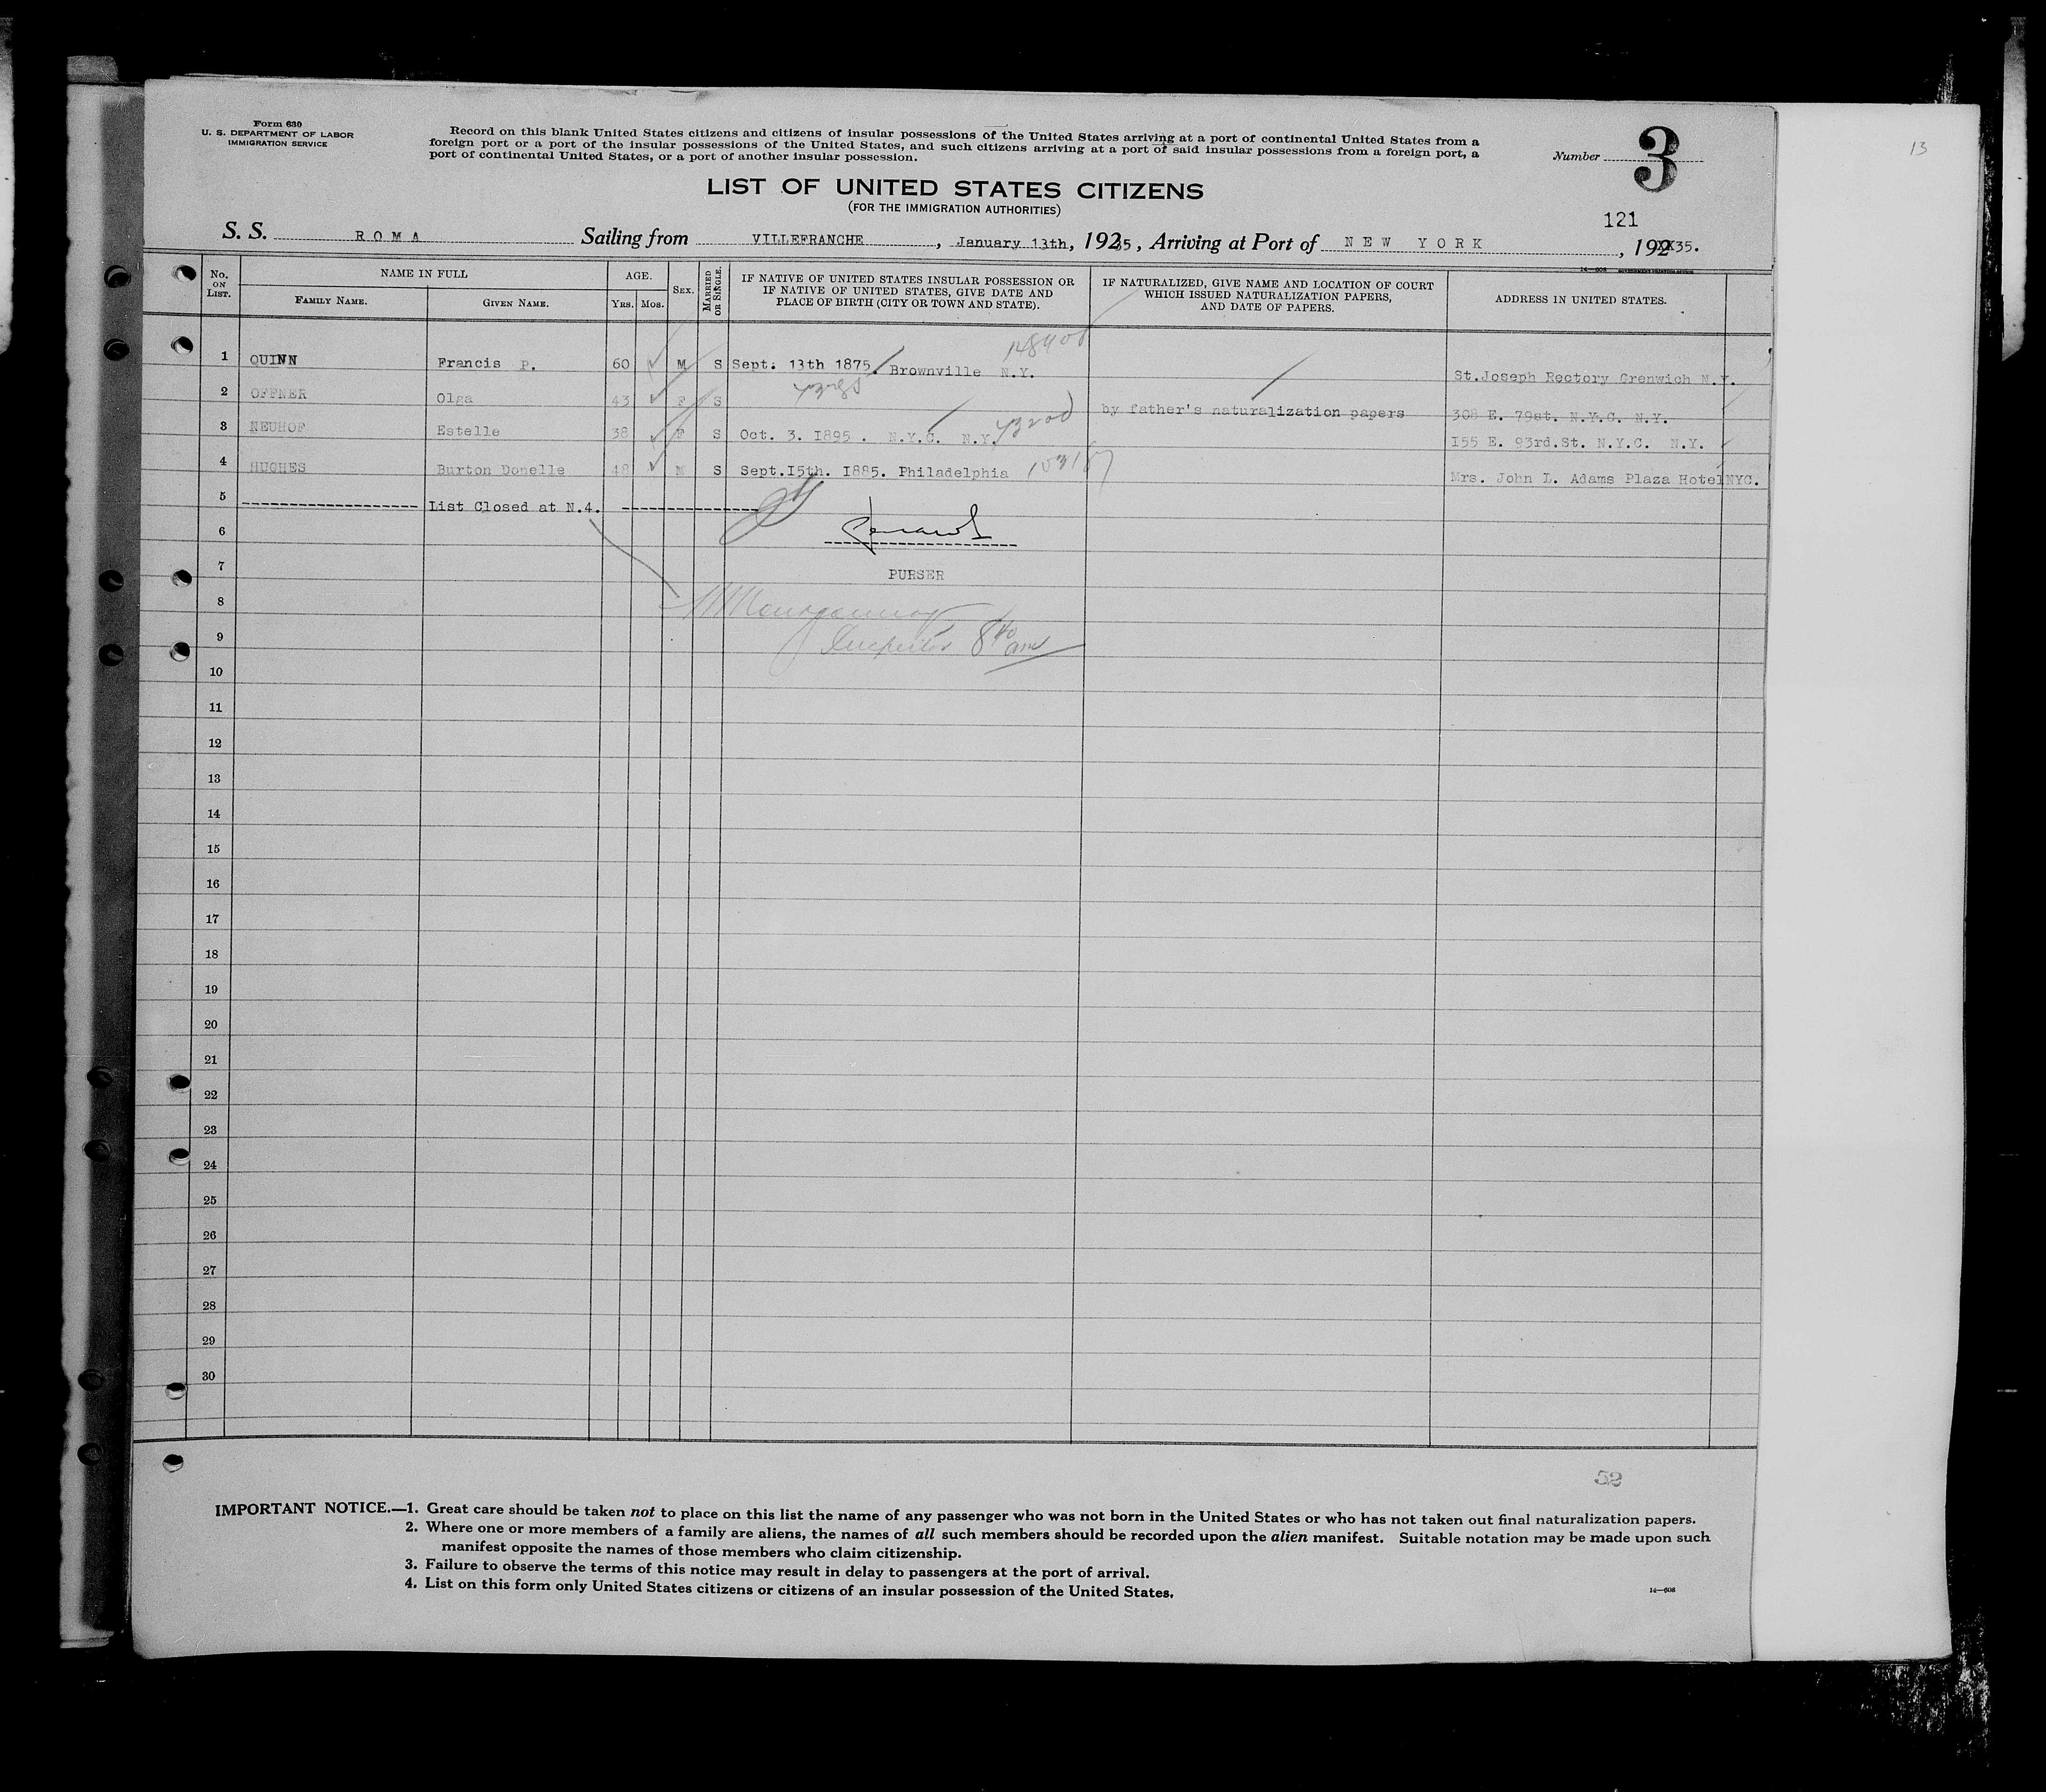 Form 630
U. S. DEPARTMENT OF LABOR
IMMIGRATION SERVICE
Record on this blank United States citizens and citizens of insular possessions of the United States arriving at a port of continental United States from a
foreign port or a port of the insular possessions of the United States, and such citizens arriving at a port of said insular possessions from a foreign port, a
port of continental United States, or a port of another insular possession.
Number 3
13
LIST OF UNITED STATES CITIZENS
(FOR THE IMMIGRATION AUTHORITIES)
121
S. S. ROMA Sailing from VILLEFRANCHE, January 13th, 1935, Arriving at Port of NEW YORK, 1935.
No. ON LIST. NAME IN FULL AGE. SEX. MARRIED OR SINGLE. IF NATIVE OF UNITED STATES INSULAR POSSESSION OR IF NATIVE OF UNITED STATES, GIVE DATE AND PLACE OF BIRTH (CITY OR TOWN AND STATE). IF NATURALIZED, GIVE NAME AND LOCATION OF COURT WHICH ISSUED NATURALIZATION PAPERS, AND DATE OF PAPERS. ADDRESS IN UNITED STATES.
FAMILY NAME. GIVEN NAME. YRS. MOS.
1 QUINN Francis P. 60 M S Sept. 13th 1875. Brownville N.Y. St.Joseph Rectory Grenwich N.Y.
2 OFFNER Olga 43 F S by father's naturalization papers 308 E. 79st. N.Y.C. N.Y.
3 NEUHOF Estelle 38 F S Oct. 3. I895. N.Y.C. N.Y. I55 E. 93rd.St. N.Y.C. N.Y.
4 HUGHES Burton Donelle 48 M S Sept.I5th. I885. Philadelphia Mrs. John L. Adams Plaza Hotel NYC.
5 ------------------ List Closed at N.4. --------------
6
7 PURSER
8
9 Inspector 8 40 am
10
11
12
13
14
15
16
17
18
19
20
21
22
23
24
25
26
27
28
29
30
52
IMPORTANT NOTICE.—1. Great care should be taken not to place on this list the name of any passenger who was not born in the United States or who has not taken out final naturalization papers.
2. Where one or more members of a family are aliens, the names of all such members should be recorded upon the alien manifest. Suitable notation may be made upon such
manifest opposite the names of those members who claim citizenship.
3. Failure to observe the terms of this notice may result in delay to passengers at the port of arrival.
4. List on this form only United States citizens or citizens of an insular possession of the United States.
14—608